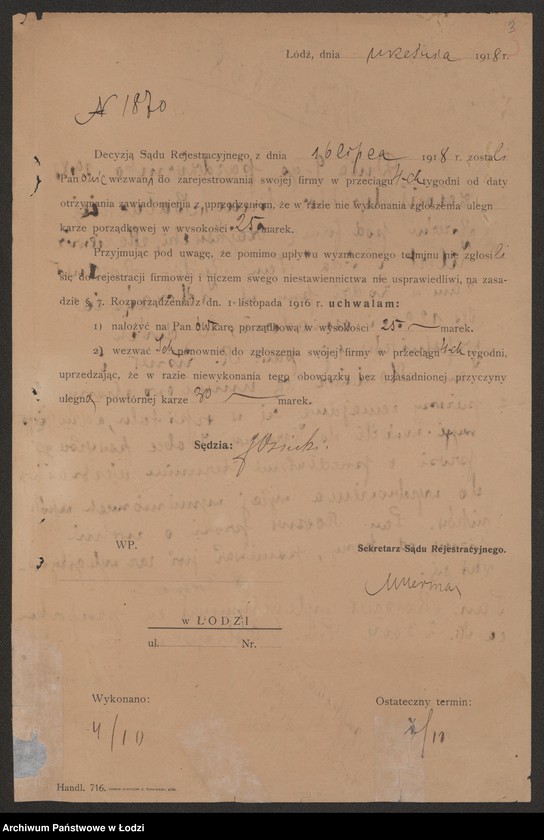 3
Łódź, dnia września 1918 r.
N 1870
Decyzją Sądu Rejestracyjnego z dnia 16 lipca 1918 r. zostali
Panowie wezwani do zarejestrowania swojej firmy w przeciągu 4-ch tygodni od daty
otrzymania zawiadomienia z uprzedzeniem, że w razie nie wykonania zgłoszenia ulegn
karze porządkowej w wysokości 25 marek.
Przyjmując pod uwagę, że pomimo upływu wyznaczonego terminu nie zgłosili
się do rejestracji firmowej i niczem swego niestawiennictwa nie usprawiedliwi, na zasa-
dzie § 7. Rozporządzenia z dn. 1 listopada 1916 r. uchwalam:
1) nałożyć na Panów karę porządkową w wysokości 25 marek.
2) wezwać Ich ponownie do zgłoszenia swojej firmy w przeciągu 4-ch tygodni,
uprzedzając, że w razie niewykonania tego obowiązku bez uzasadnionej przyczyny
ulegną powtórnej karze 30 marek.
Sędzia:
WP.
Sekretarz Sądu Rejestracyjnego.
w ŁODZI
ul. Nr.
Wykonano:
Ostateczny termin:
4/10
/11
Handl. 716.
Archiwum Państwowe w Łodzi